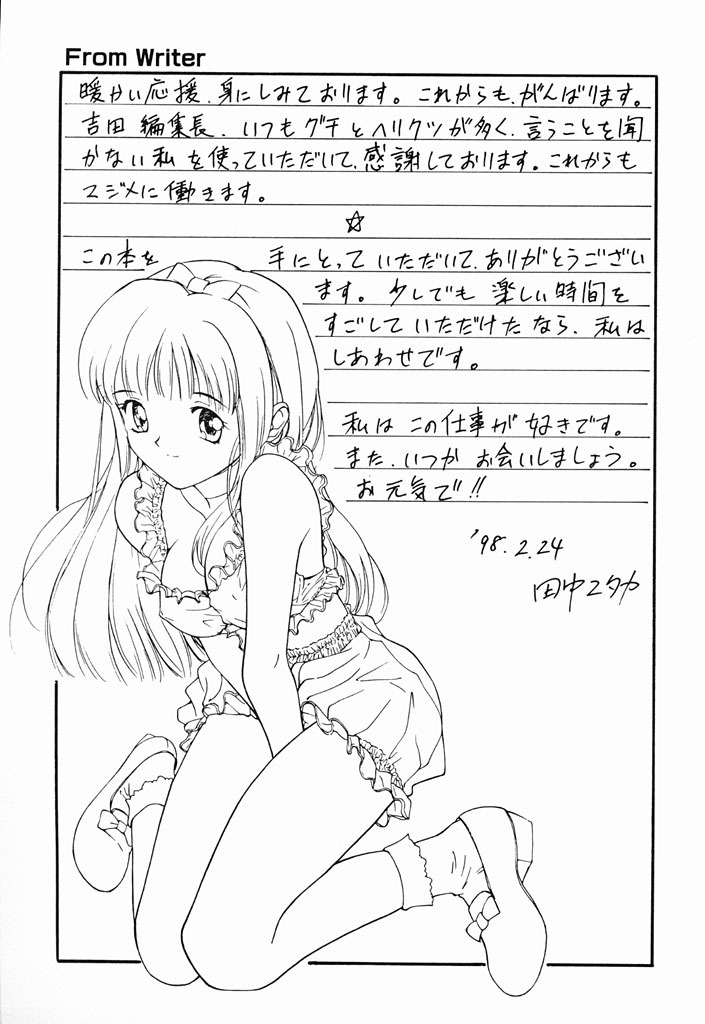 From Writer
暖かい応援、身にしみております。これからも、がんばります。
吉田編集長、いつもグチとヘリクツが多く、言うことを聞
かない私を使っていただいて、感謝しております。これからも
マジメに働きます。
☆
この本を手にとっていただいて、ありがとうござい
ます。少しでも楽しい時間を
すごしていただけたなら、私は
しあわせです。
私はこの仕事が好きです。
また、いつかお会いしましょう。
お元気で!!
'98.2.24
田中ユタカ